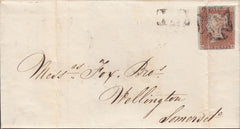 Mess.rs Fox, Bro.s
Wellington,
Somerset.